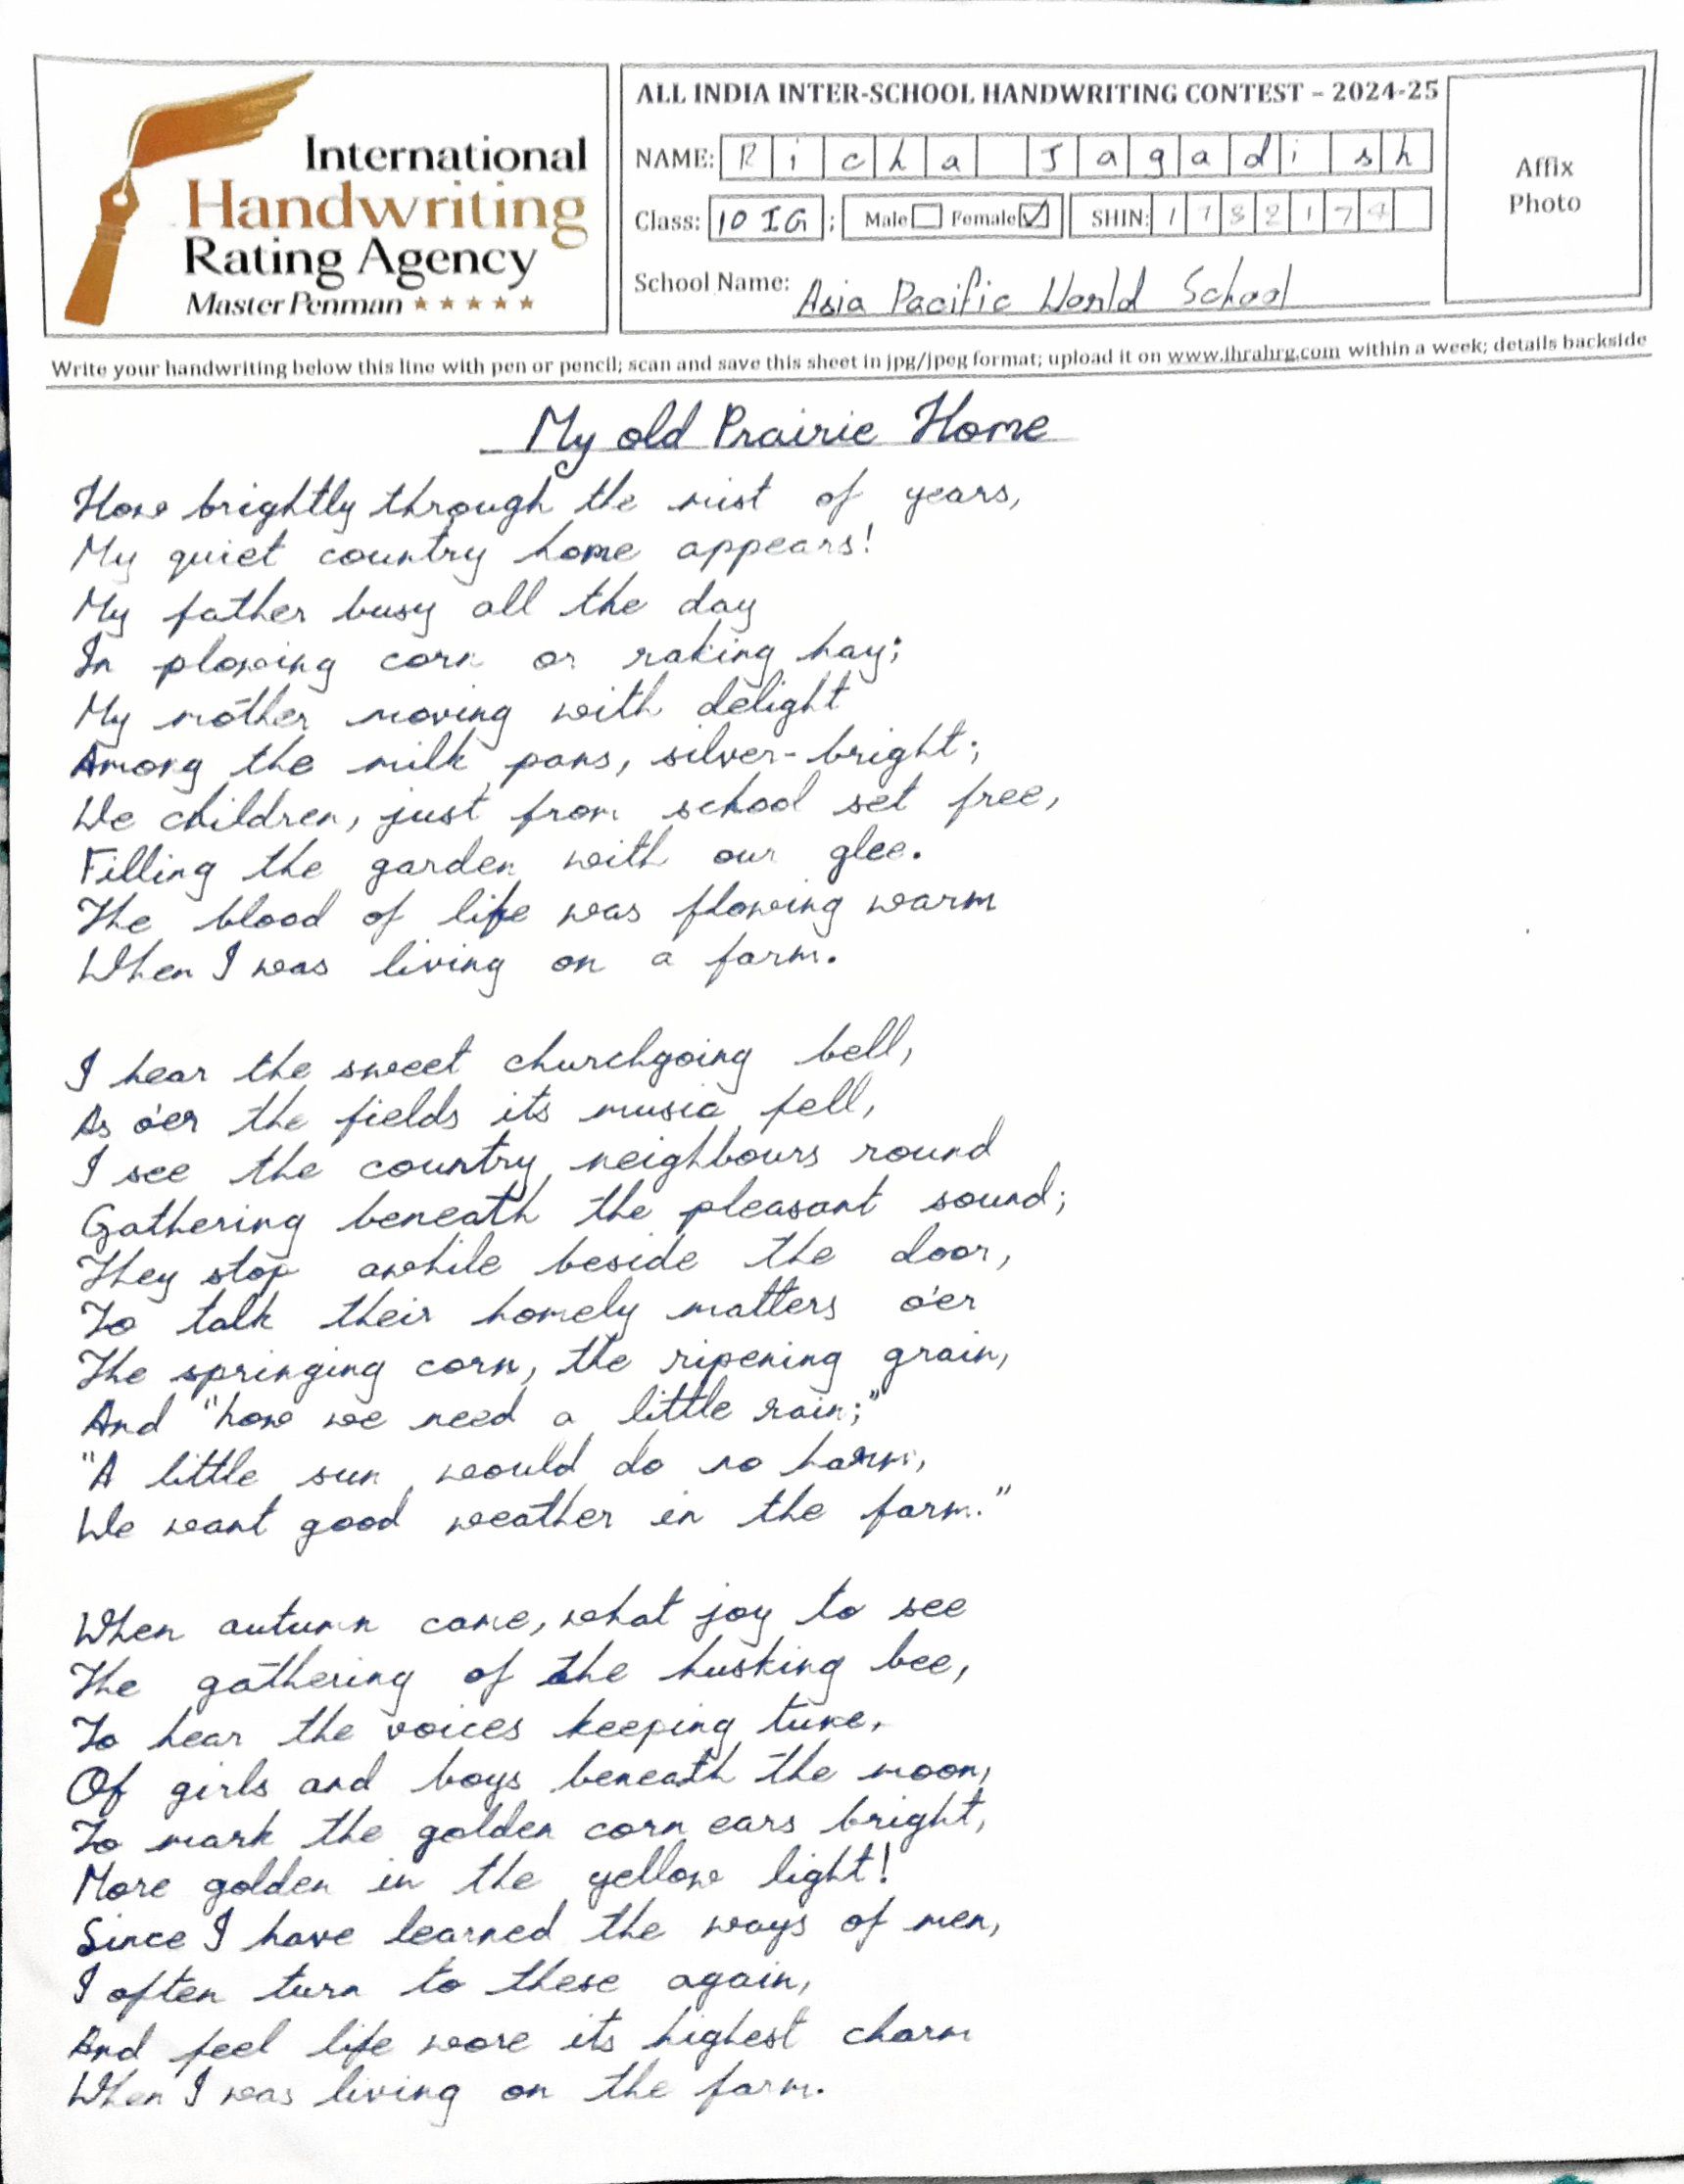 International
Handwriting
Rating Agency
Master Penman ★ ★ ★ ★ ★
ALL INDIA INTER-SCHOOL HANDWRITING CONTEST – 2024-25
NAME: Richa Jagadish
Class: 10 IG ; Male Female ✓ SHIN: 1782174
School Name: Asia Pacific World School
Affix
Photo
Write your handwriting below this line with pen or pencil; scan and save this sheet in jpg/jpeg format; upload it on www.ihrahrg.com within a week; details backside
My old Prairie Home
How brightly through the mist of years,
My quiet country home appears!
My father busy all the day
In plowing corn or raking hay;
My mother moving with delight
Among the milk pans, silver-bright;
We children, just from school set free,
Filling the garden with our glee.
The blood of life was flowing warm
When I was living on a farm.
I hear the sweet churchgoing bell,
As o'er the fields its music fell,
I see the country neighbours round
Gathering beneath the pleasant sound;
They stop awhile beside the door,
To talk their homely matters o'er
The springing corn, the ripening grain,
And "how we need a little rain;"
"A little sun would do no harm,
We want good weather in the farm."
When autumn came, what joy to see
The gathering of the husking bee,
To hear the voices keeping tune,
Of girls and boys beneath the moon,
To mark the golden corn ears bright,
More golden in the yellow light!
Since I have learned the ways of men,
I often turn to these again,
And feel life wore its highest charm
When I was living on the farm.